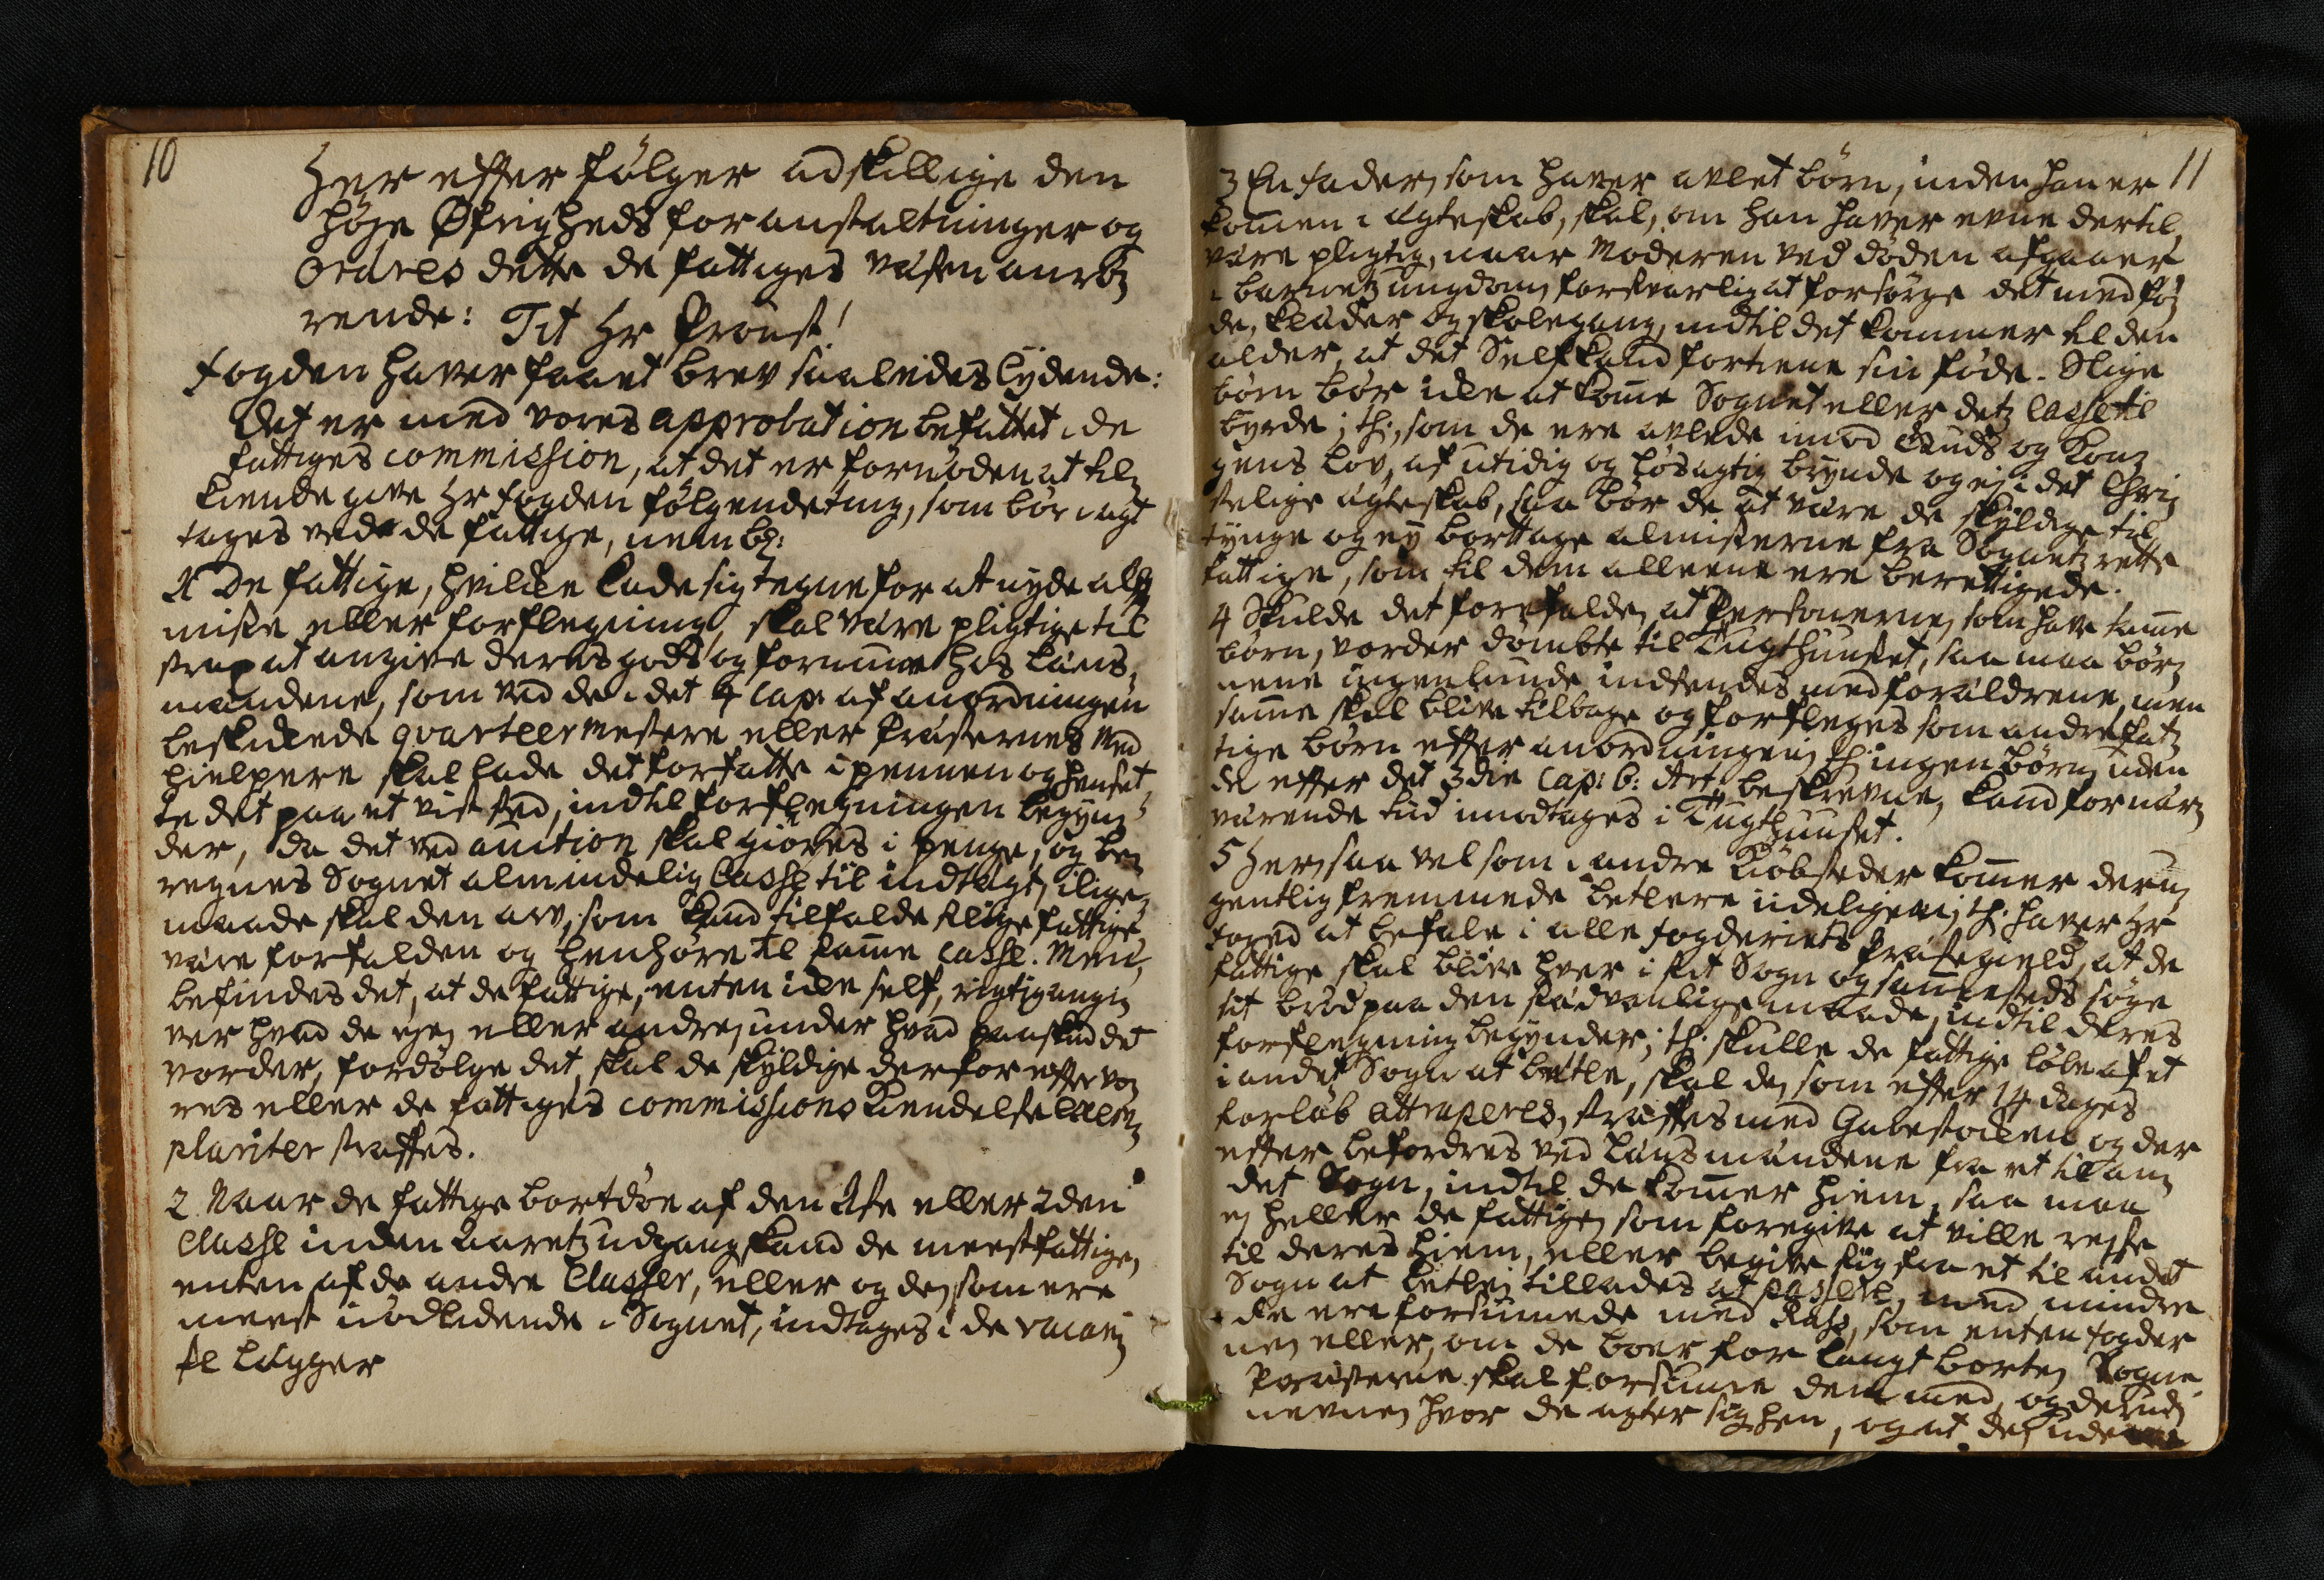 10
Her efter følger adskillige den
høje Øfrigheds foranstaltninger og
ordres dette de fattiges væsen anrø-
rende: Tit Hr Proust!
fogden haver faaet brev saaledes lydende:
Det er med vores approbation befattet i de
fattiges commission, at det er fornøden at til-
kiende give Hr fogden følgende ting, som bør i agt
tages ved de fattige, nembl:
1 De fattige, hvilke lade sig tegne for at nyde all-
misse eller forflegning, skal være pligtige til
strax at angive deres gods og formue hos læns-
mændene, som ved de i det 4 Cap: af anordningen
beskikkede qvarteermestere eller Præsternes Med
hielpere skal lade det forfatte i pennen og hensæt-
te det paa et vist sted, indtil forflegningen begyn-
der, da det ved auction skal giøres i penge, og be-
regnes Sognet almindelig Casse til indtægt, ilige-
maade skal den arv, som kand tilfalde slige fattige,
være forfalden og henhøre til samme Casse. Men,
befindes det, at de fattige, enten ikke self, rigtig angi-
ver hvad de eje, eller andre, under hvad paaskud det
vorder, fordølge det, skal de skyldige derfor efter vo-
res eller de fattiges commissions Kiendelse exem-
plariter straffes.
2 Naar de fattige bortdøe af den 1ste eller 2den
Classe inden aaretz udgang kand de meest fattige,
enten af de andre Classer, eller og de, som ere
meest nødlidende i Sognet, indtages i de vacan-
te Lægger
11
3 En fader, som haver avlet børn, inden han er
kommen i ægteskab, skal, om han haver evne dertil,
være pligtig, naar Moderen ved døden afgaaer
i barnetz ungdom, forsvarlig at forsørge det med fø-
de, klæder og skolegang, indtil det kommer til den
alder, at det Self kand fortiene sin føde. Slige
børn bør ikke at komme Sognet eller detz Casse til
byrde; th:, som de ere avlede imod Guds og Kon-
gens lov, af utidig og løsagtig brynde og ej i det Chri-
stelige ægteskab, saa bør de at være de skyldige til
tynge og ey borttage almisserne fra Sognetz rette
fattige, som til dem alleene ere berettigede.
4 Skulde det forefalde, at Personerne, som have samme
børn, vorder dømbte til Tugthuuset, saa maa bør-
nene ingenlunde indsendes med forældrene, men
samme skal blive tilbage og forfleges som andre fat-
tige børn efter anordningen, th: ingen børn, uden
de efter det 3die Cap: 6: Art: beskrevne, kand for nær-
værende tid imodtages i Tugthuuset.
5 Her, saa vel som i andre Kiøbsteder kommer deru-
gentlig fremmede betlere iidelig ; th: haver Hr
foged at befale i alle fogderiets Præstegield, at de
fattige skal blive hver i sit Sogn og sammesteds søge
sit brød paa den sædvanlige maade, indtil deres
forflegning begynder; th: skulle de fattige løbe af et
i andet Sogn at betle, skal de, som efter 14 dages
forløb attraperes, straffes med Gabestokken og der
efter befordres ved Lænsmændene fra et til an-
det Sogn, indtil de kommer hiem, saa maa
ej heller de fattige, som foregive at ville rejse
til deres hiem, eller begive sig fra et til andet
Sogn at betle, tillades at passere, med mindre
de ere forsiunede med Pass, som enten fogder
ne, eller, om de boer for langt borte, Sogne-
Præsterne skal forsiune dem med, og derudi
nevne, hvor de agter sig hen, og at de,